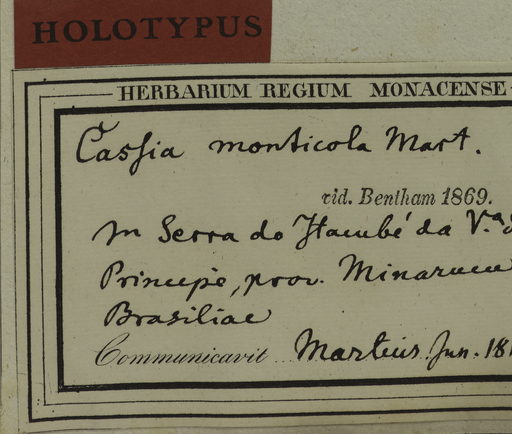 HOLOTYPUS
HERBARIUM REGIUM MONACENSE
Cassia monticola Mart.
vid. Bentham 1869.
In Serra do Itambé da V.ª
Principe, prov. Minarum
Brasiliae
Communicavit Martius Jun. 18